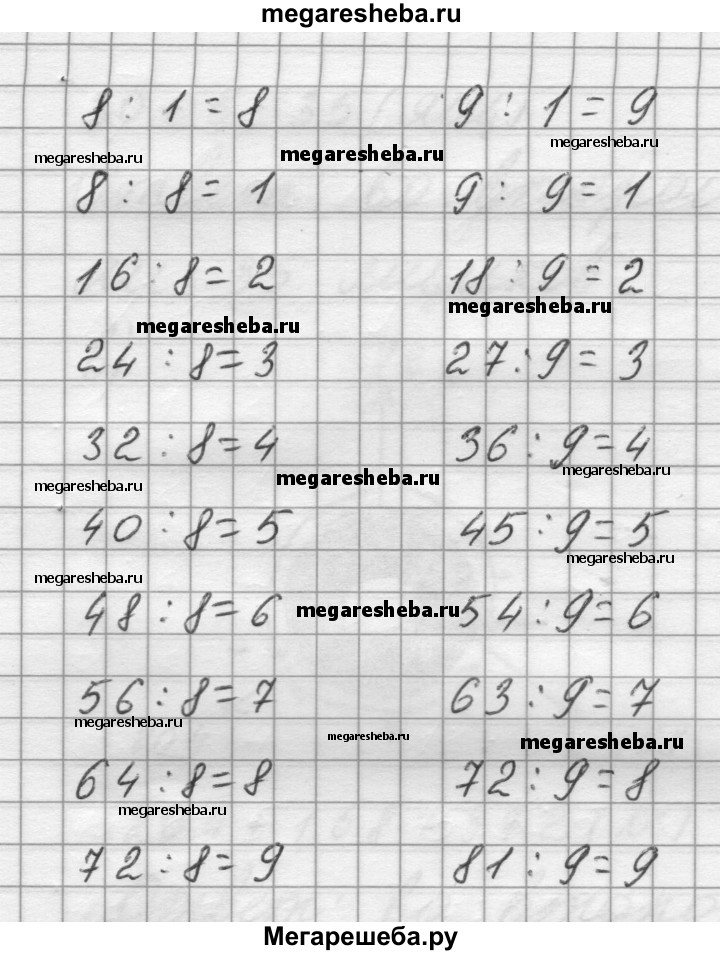 megaresheba.ru
8 : 1 = 8 9 : 1 = 9
megaresheba.ru megaresheba.ru megaresheba.ru
8 : 8 = 1 9 : 9 = 1
16 : 8 = 2 18 : 9 = 2
megaresheba.ru megaresheba.ru
24 : 8 = 3 27 : 9 = 3
32 : 8 = 4 36 : 9 = 4
megaresheba.ru megaresheba.ru megaresheba.ru
40 : 8 = 5 45 : 9 = 5
megaresheba.ru megaresheba.ru
48 : 8 = 6 megaresheba.ru 54 : 9 = 6
56 : 8 = 7 63 : 9 = 7
megaresheba.ru megaresheba.ru megaresheba.ru
64 : 8 = 8 72 : 9 = 8
megaresheba.ru
72 : 8 = 9 81 : 9 = 9
Мегарешеба.ру